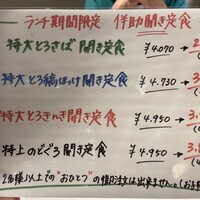 ランチ期間限定 伴助開き定食
特大とろさば開き定食 ¥4.070→2.
特大とろ縞ほっけ開き定食 ¥4.730→3.
特大とろきんき開き定食 ¥4.950→3.
特上のどぐろ開き定食 ¥4.950→3.
2名様以上での"おひとつ"の御注文は出来ません。